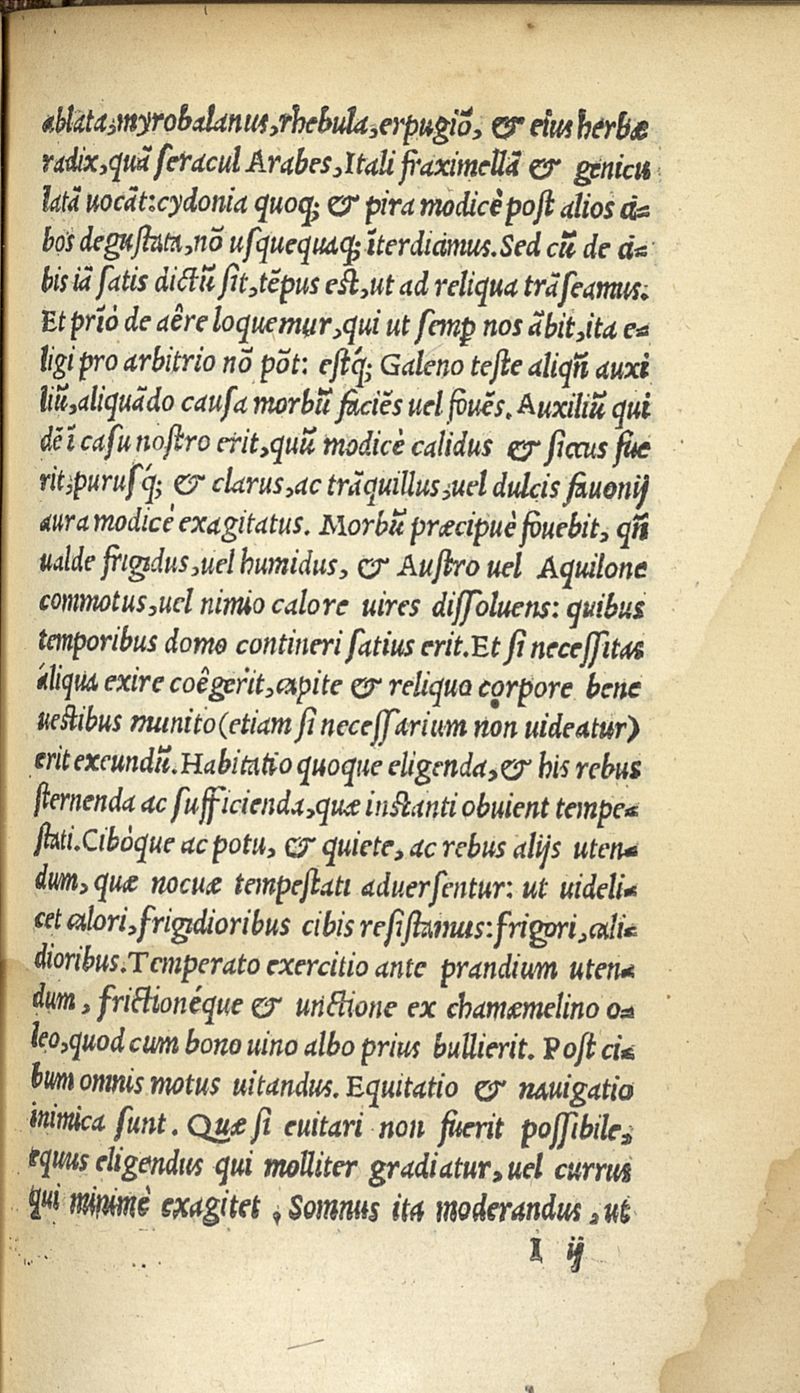 ablata,myrobalanus,rhebula,erpugiõ, & eius herbæ
radix,quã seracul Arabes,Itali fraximellã & genicu
latã uocãt:cydonia quoq; & pira modicè post alios ci-
bos degustata,nõ usquequaq; ĩterdicimus.Sed cũ de ci-
bis iã satis dictũ sit,tẽpus est,ut ad reliqua trãseamus.
Et prĩò de aêre loquemur,qui ut semp nos ãbit,ita e-
ligi pro arbitrio nõ põt: estq́; Galeno teste aliqñ auxi
liũ,aliquãdo causa morbũ faciẽs uel fouẽs. Auxiliũ qui
dẽ ĩ casu nostro erit,quũ modicè calidus & siccus fue
rit,purusq́; & clarus,ac trãquillus,uel dulcis fauonij
aura modicè exagitatus. Morbũ præcipuè fouebit, qñ
ualde frigidus,uel humidus, & Austro uel Aquilone
commotus,uel nimio calore uires dissoluens: quibus
temporibus domo contineri satius erit.Et si necessitas
áliqua exire coêgerit,capite & reliquo corpore bene
uestibus munito(etiam si necessarium non uideatur)
erit exeundũ.Habitatio quoque eligenda,& his rebus
sternenda ac sufficienda,quæ instanti obuient tempe-
stati.Cibòque ac potu, & quiete, ac rebus alijs uten-
dum, quæ nocuæ tempestati aduersentur: ut uideli-
cet calori,frigidioribus cibis resistamus:frigori,cali-
dioribus.Temperato exercitio ante prandium uten-
dum, frictionéque & unctione ex chamæmelino o-
leo,quod cum bono uino albo prius bullierit. Post ci-
bum omnis motus uitandus. Equitatio & nauigatio
inimica sunt. Quæ si euitari non fuerit possibile,
equus eligendus qui molliter gradiatur, uel currus
qui minimè exagitet , Somnus ita moderandus , ut
I ij